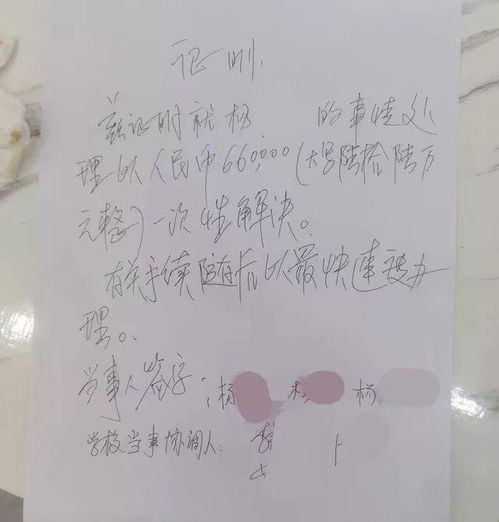 证明
兹证明就杨 的事情处
理以人民币660000(大写陆拾陆万
元整)一次性解决。
有关手续随后以最快速度办
理。
当事人签字: 杨 杨 杨
学校当事协调人: 李